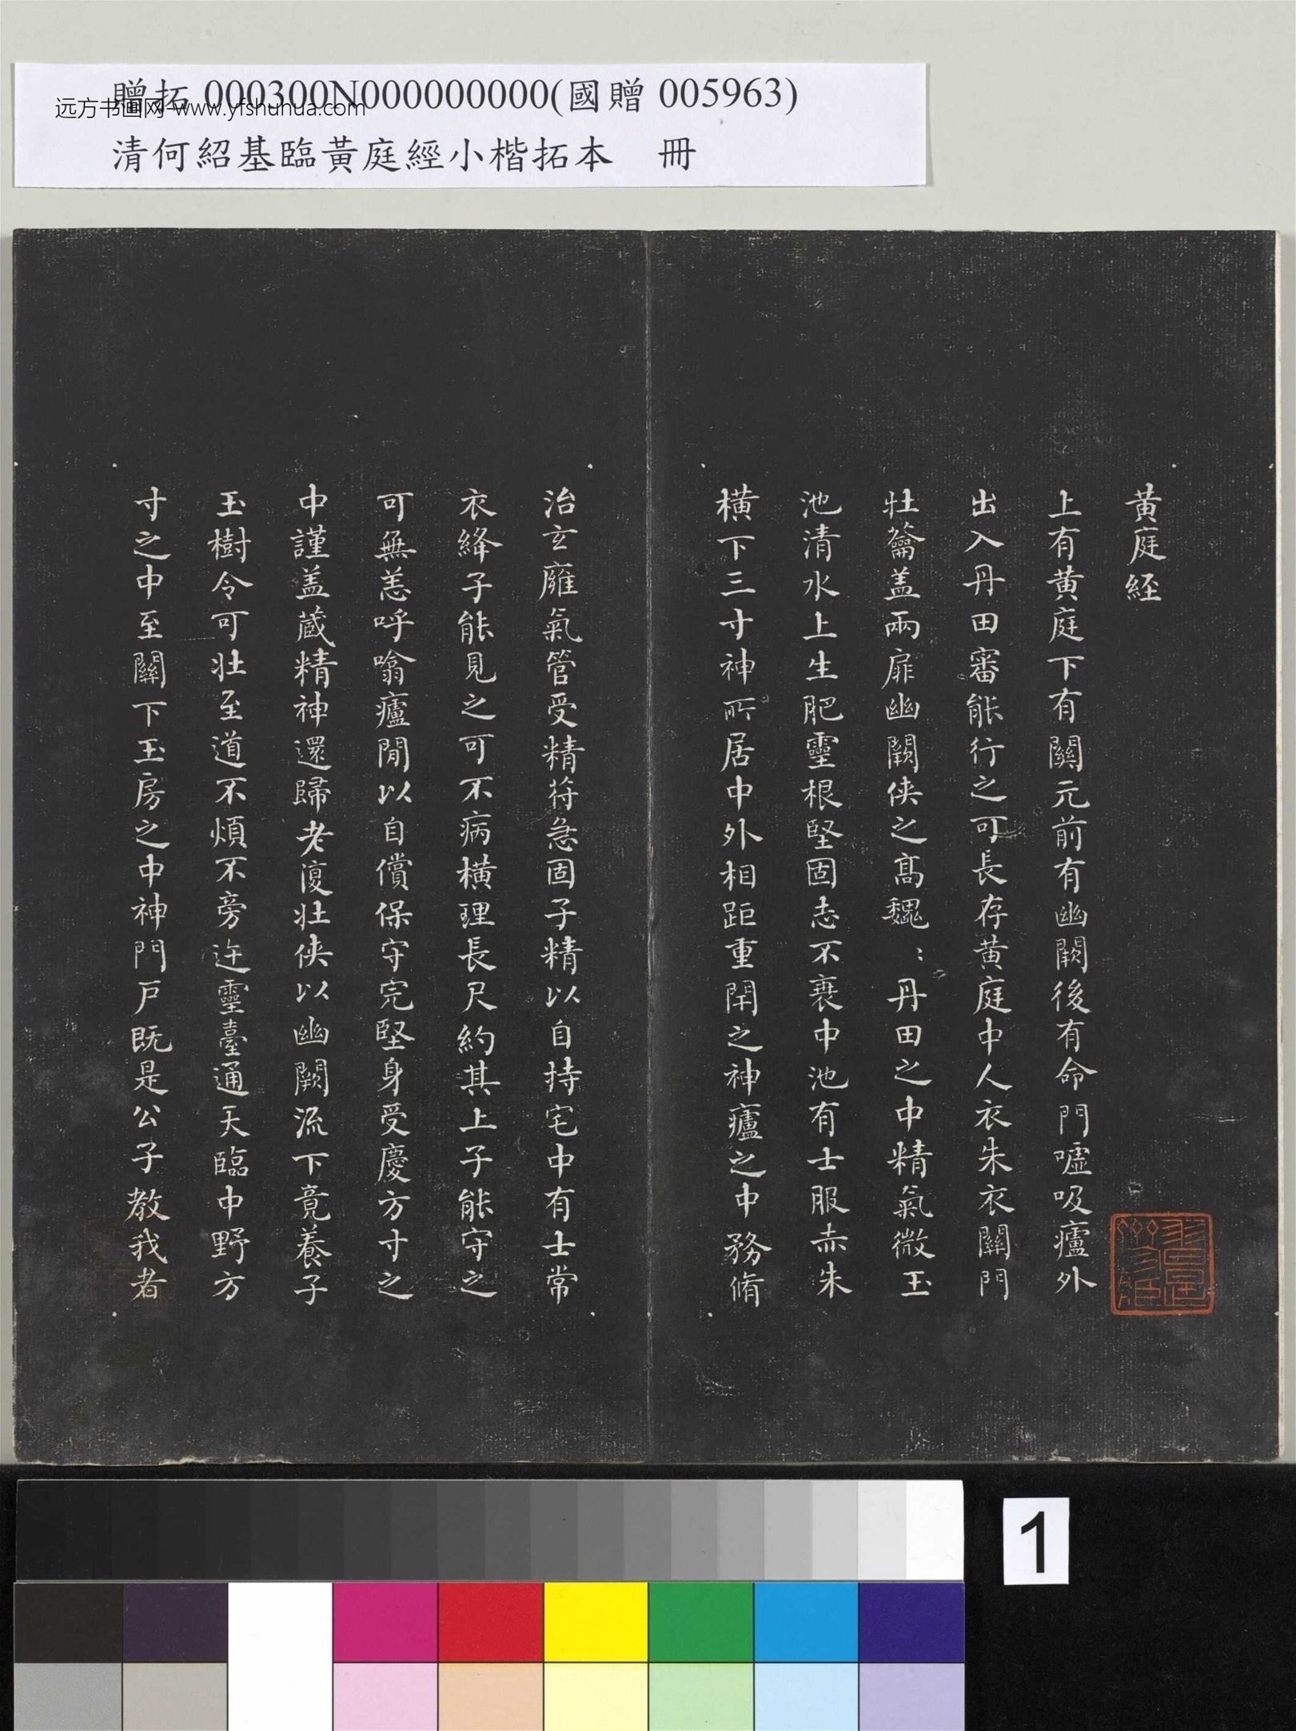 贈拓 000300N000000000(國贈 005963)
远方书画网-www.yfshuhua.com
清何紹基臨黃庭經小楷拓本 冊
黃庭経
上有黃庭下有關元前有幽闕後有命門噓吸廬外
出入丹田審能行之可長存黃庭中人衣朱衣關門
壯蘥盖兩扉幽闕侠之高魏：丹田之中精氣微玉
池清水上生肥靈根堅固志不衰中池有士服赤朱
横下三寸神所居中外相距重閇之神廬之中務脩
治玄廱氣管受精符急固子精以自持宅中有士常
衣絳子能見之可不病横理長尺約其上子能守之
可無恙呼噏廬閒以自償保守完堅身受慶方寸之
中謹盖藏精神還歸老復壯侠以幽闕流下竟養子
玉樹令可壯至道不煩不旁迕靈臺通天臨中野方
寸之中至關下玉房之中神門戶既是公子教我者
1